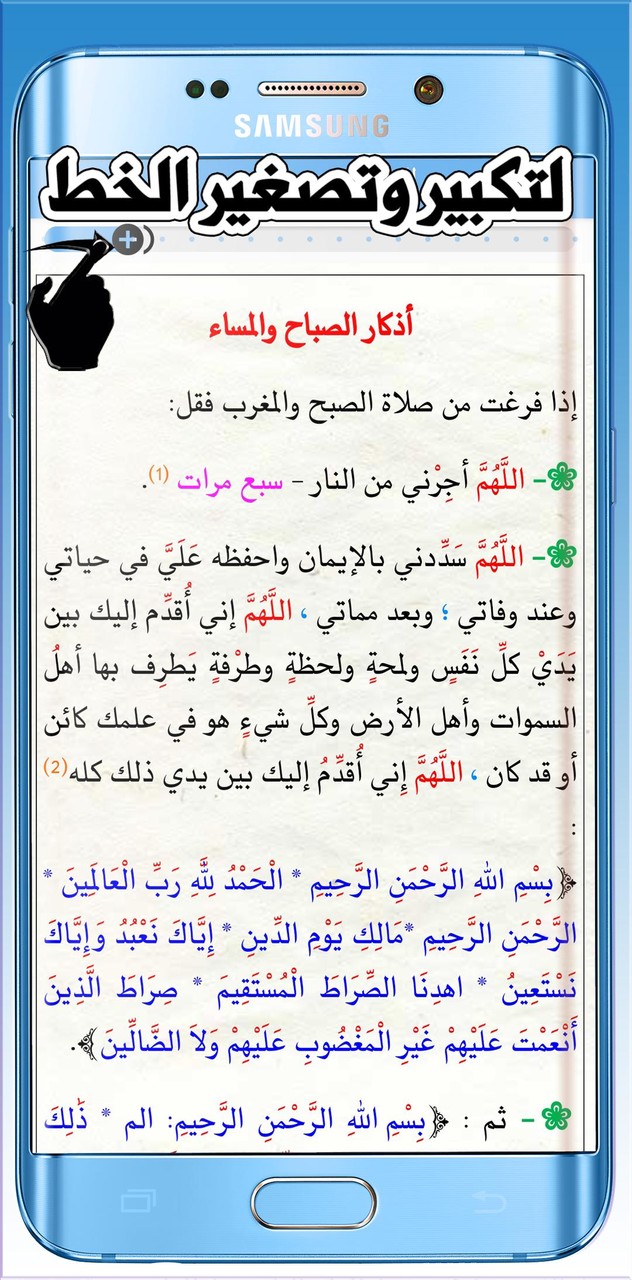 SAMSUNG
لتكبير وتصغير الخط
أذكار الصباح والمساء
إذا فرغت من صلاة الصبح والمغرب فقل:
- اللَّهُمَّ أجِرْني من النار - سبع مرات (1).
- اللَّهُمَّ سَدِّدني بالإيمان واحفظه عَلَيَّ في حياتي
وعند وفاتي ؛ وبعد مماتي ، اللَّهُمَّ إني أُقدِّم إليك بين
يَدَيْ كلِّ نَفَسٍ ولمحةٍ ولحظةٍ وطرْفةٍ يَطرِف بها أهلُ
السموات وأهل الأرض وكلِّ شيءٍ هو في علمك كائن
أو قد كان ، اللَّهُمَّ إِني أُقدِّمُ إليك بين يدي ذلك كله(2)
:
﴿بِسْمِ اللهِ الرَّحْمَنِ الرَّحِيمِ * الْحَمْدُ لِلَّهِ رَبِّ الْعَالَمِينَ *
الرَّحْمَنِ الرَّحِيمِ *مَالِكِ يَوْمِ الدِّينِ * إِيَّاكَ نَعْبُدُ وَإِيَّاكَ
نَسْتَعِينُ * اهدِنَا الصِّرَاطَ الْمُسْتَقِيمَ * صِرَاطَ الَّذِينَ
أَنْعَمْتَ عَلَيْهِمْ غَيْرِ الْمَغْضُوبِ عَلَيْهِمْ وَلاَ الضَّالِّينَ﴾.
- ثم : ﴿بِسْمِ اللهِ الرَّحْمَنِ الرَّحِيمِ: الم * ذَٰلِكَ